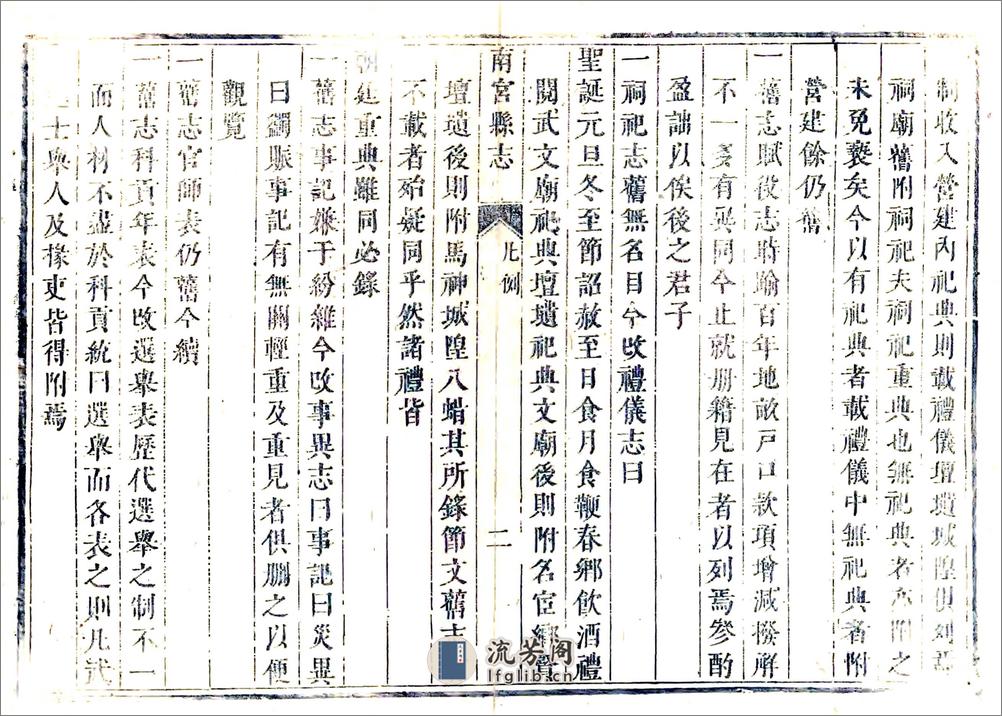 制收入營建內祀典則載禮儀壇壝城隍俱列
祠廟舊附祠祀夫祠祀重典也無祀典者亦附之
未免褻矣今以有祀典者載禮儀中無祀典者附
營建餘仍舊
一舊志賦役志時踰百年地畝戸口款項增減撥觧
不一多有與同今止就册籍見在者以列焉參酌
盈詘以俟後之君子
一祠祀志舊無名目今攺禮儀志曰
聖誕元旦冬至節詔赦至日食月食鞭春鄉飲酒禮
閱武文廟祀典壇壝祀典文廟後則附名宦鄉賢
壇壝後則附馬神城隍八蜡其所錄節文舊志
不載者殆疑同乎然諸禮皆
廷重典雖同必錄
一舊志事記嫌于紛雜今攺事異志曰事記曰災異
曰蠲賑事記有無關輕重及重見者俱刪之以便
觀覽
一舊志官師表仍舊今續
一舊志科貢年表今攺選舉表歷代選舉之制不一
而人材不盡於科貢統曰選舉而各表之則凡武
士舉人及掾吏皆得附焉
南宮縣志
凡例
二
流芳阁
lfglib.cn